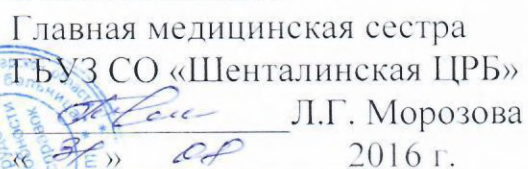 Главная медицинская сестра
ГБУЗ СО «Шенталинская ЦРБ»
Л.Г. Морозова
«31» 08 2016 г.